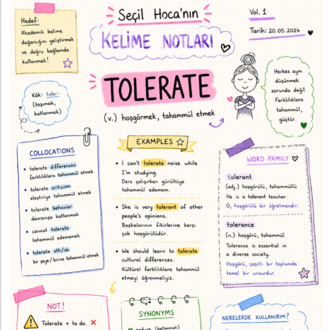 Seçil Hoca'nın
KELİME NOTLARI
Vol. 1
Tarih: 20.05.2024
Hedef:
Akademik kelime
dağarcığını geliştirmek
ve doğru bağlamda
kullanmak!
Kök: tole-
(taşımak,
katlanmak)
TOLERATE
(v.) hoşgörmek, tahammül etmek
Herkes aynı
düşünmek
zorunda değil.
Farklılıklara
tahammül,
güçtür.
COLLOCATIONS
• tolerate differences
farklılıklara tahammül etmek
• tolerate criticism
eleştiriye tahammül etmek
• tolerate behavior
davranışa katlanmak
• cannot tolerate
tahammül edememek
• tolerate sth/sb
bir şeye/birine tahammül etmek
EXAMPLES
• I can't tolerate noise while
I'm studying.
Ders çalışırken gürültüye
tahammül edemem.
• She is very tolerant of other
people's opinions.
Başkalarının fikirlerine karşı
çok hoşgörülüdür.
• We should learn to tolerate
cultural differences.
Kültürel farklılıklara tahammül
etmeyi öğrenmeliyiz.
WORD FAMILY
tolerant
(adj.) hoşgörülü, tahammüllü
He is a tolerant teacher.
O, hoşgörülü bir öğretmendir.
tolerance
(n.) hoşgörü, tahammül
Tolerance is essential in
a diverse society.
Hoşgörü, çeşitli bir toplumda
temel bir unsurdur.
NOT!
Tolerate + to do
SYNONYMS
NERELERDE KULLANIRIM?